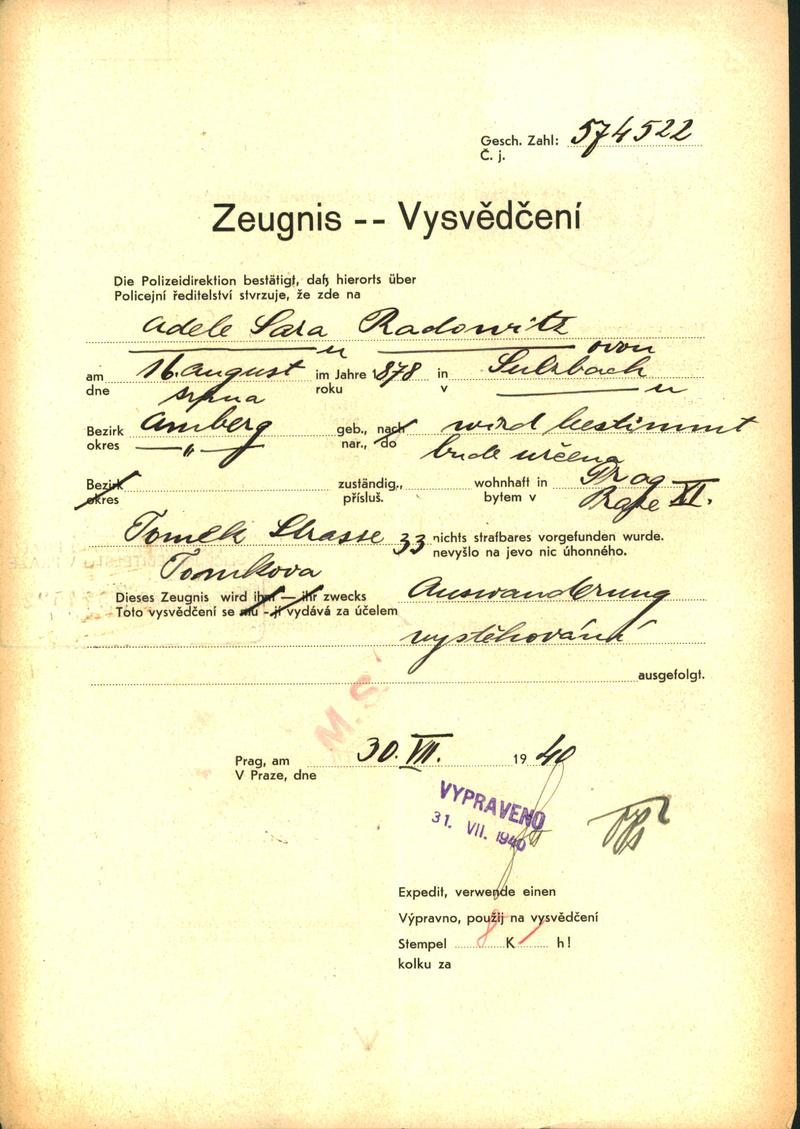 Gesch. Zahl: 574522
Č. j.
Zeugnis -- Vysvědčení
Die Polizeidirektion bestätigt, daß hierorts über
Policejní ředitelství stvrzuje, že zde na
Adele Sara Radowitz
u ovou
am 16. august im Jahre 1878 in Sulzbach
dne srpna roku v u
Bezirk Amberg geb., nach wird bestimmt
okres " nar., do bude určena
Bezirk zuständig., wohnhaft in Prag
okres přísluš. bytem v Praze XI.
Tomek Strasse 33 nichts strafbares vorgefunden wurde.
Tomkova nevyšlo na jevo nic úhonného.
Dieses Zeugnis wird ihm — ihr zwecks Auswanderung
Toto vysvědčení se mu - jí vydává za účelem
vystěhování
ausgefolgt.
M. S.
Prag, am 30. VII. 1940
V Praze, dne
VYPRAVENO
31. VII. 1940
Expedit, verwende einen
Výpravno, použij na vysvědčení
Stempel 8 K h!
kolku za